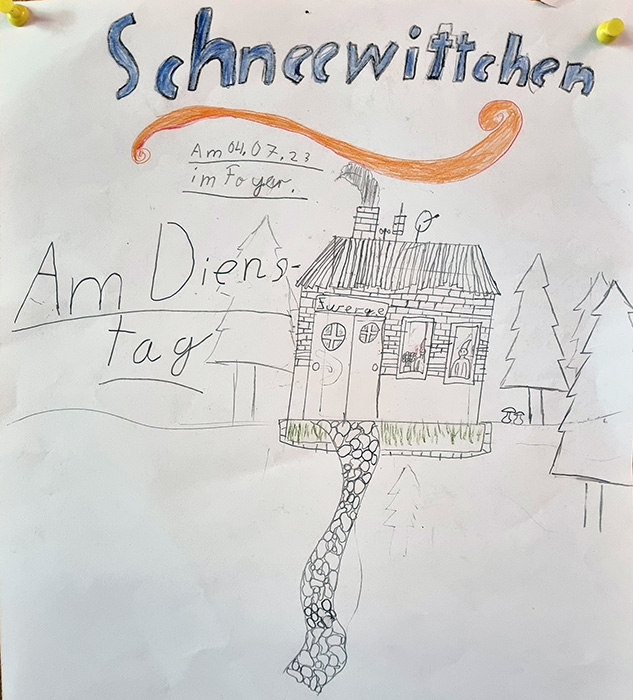 Schneewittchen
Am 04.07.23
im Foyer.
Am Diens-
tag
Swerge